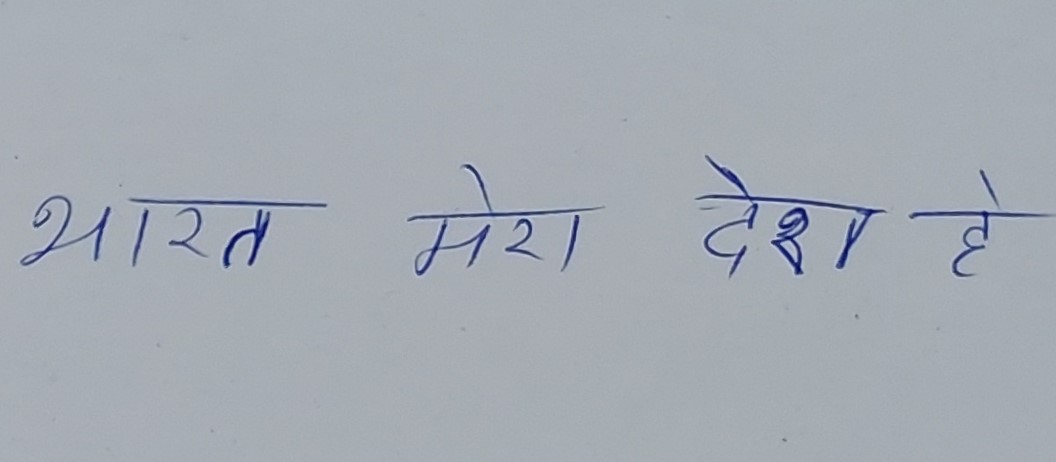 भारत मेरा देश हे